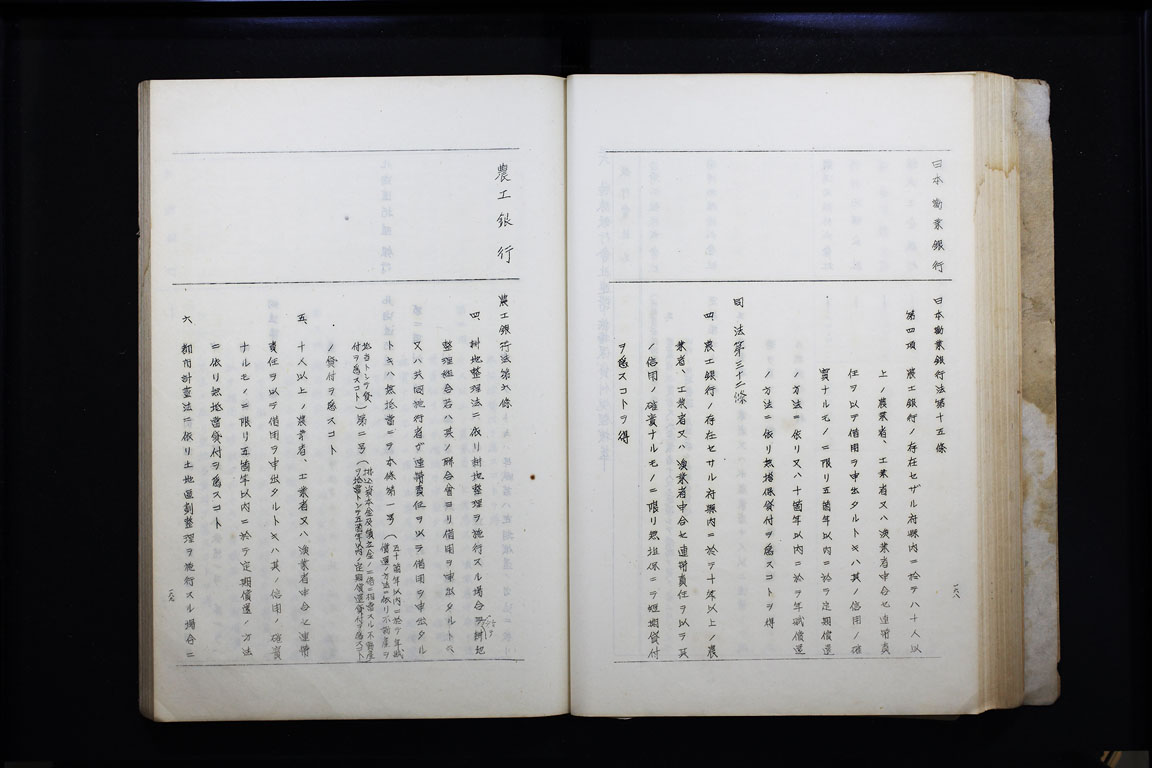 日本勸業銀行
日本勸業銀行法第十五條
第四項 農工銀行ノ存在セザル府縣内ニ於テハ十人以
上ノ農業者、工業者又ハ漁業者申合セ連帶責
任ヲ以テ借用ヲ申出タルトキハ其ノ信用ノ確
實ナルモノニ限リ五箇年以内ニ於テ定期償還
ノ方法ニ依リ又ハ十箇年以内ニ於テ年賦償還
ノ方法ニ依リ無擔保貸付ヲ爲スコトヲ得
同 法第三十二條
四、農工銀行ノ存在セサル府縣内ニ於テ十年以上ノ農
業者、工業者又ハ漁業者申合セ連帶責任ヲ以テ其
ノ信用ノ確實ナルモノニ限リ無擔保ニテ短期貸付
ヲ爲スコトヲ得
一六八
農工銀行
農工銀行法第六條
四、耕地整理法ニ依リ耕地整理ヲ施行スル場合耕地
整理組合若ハ其ノ聯合會ヨリ借用ヲ申出タルトキ
又ハ共同施行者ガ連帶責任ヲ以テ借用ヲ申出タル
トキハ無擔當ニテ本條第一号(五十箇年以内ニ於テ年賦償還ノ方法ニ依リ不動産ヲ
抵当トシテ貸付ヲ爲スコト)第二号(拂込資本金及積立金ノ二倍ニ相当スル不動産ヲ抵當トシテ五箇年以内ノ定期償還貸付ヲ爲スコト
ノ貸付ヲ爲スコト
五、十人以上ノ農業者、工業者又ハ漁業者申合セ連帶
責任ヲ以テ借用ヲ申出タルトキハ其ノ信用ノ確實
ナルモノニ限リ五箇年以内ニ於テ定期償還ノ方法
ニ依リ無抵當貸付ヲ爲スコト
六、都市計畫法ニ依リ土地區劃整理ヲ施行スル場合ニ
一六九